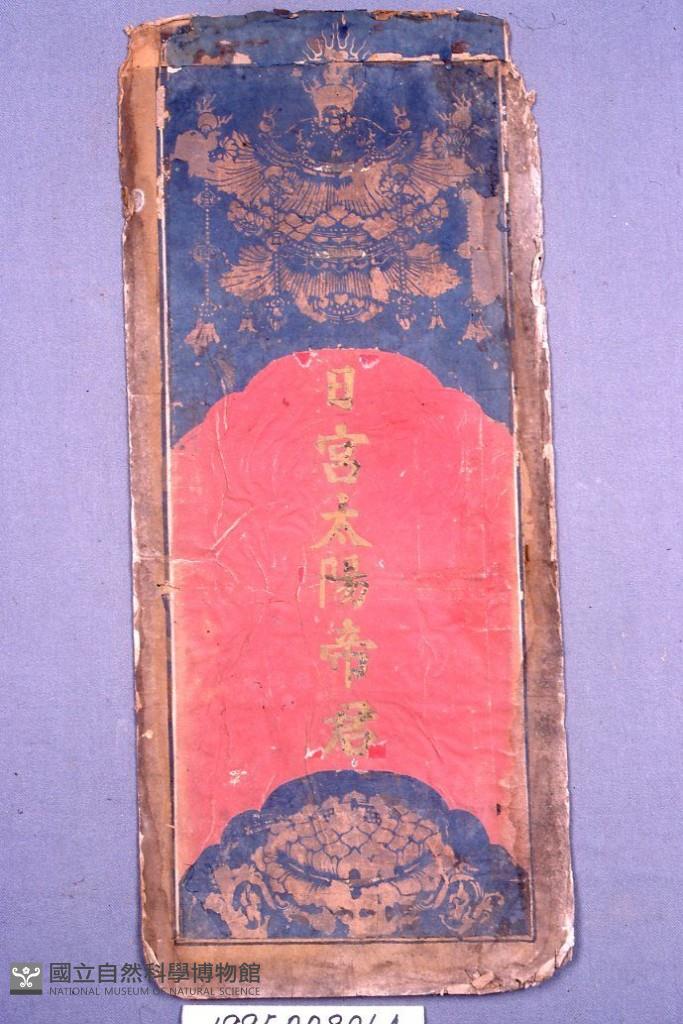 日宮太陽帝君
國立自然科學博物館
NATIONAL MUSEUM OF NATURAL SCIENCE